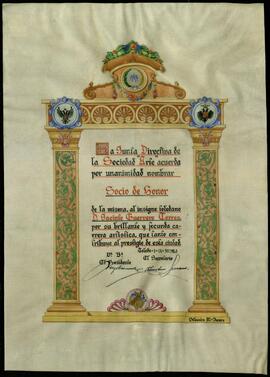 La Junta Directiva de
la Sociedad Arte acuerda
por unanimidad nombrar
Socio de Honor
de la misma, al insigne toledano
D. Jacinto Guerrero Torres,
por su brillante y fecunda ca-
rrera artística, que tanto con-
tribuye al prestigio de esta ciudad.
Toledo
Vº Bº
El Presidente El Secretario